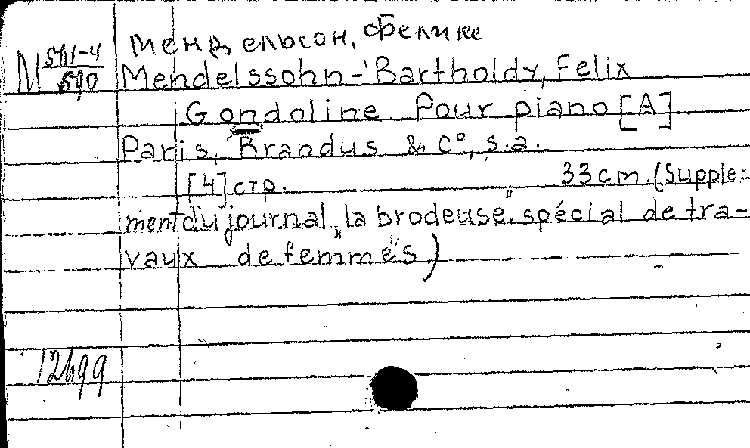 Мендельсон, Феликс
М 591-4
590
Mendelssohn-Bartholdy, Felix
Gondoline Pour piano [A]
Paris, Brandus & C°, s.a.
[4] стр. 33 cm. (Supple-
ment du journal „la brodeuse" spécial de tra-
vaux de femmes)
12699